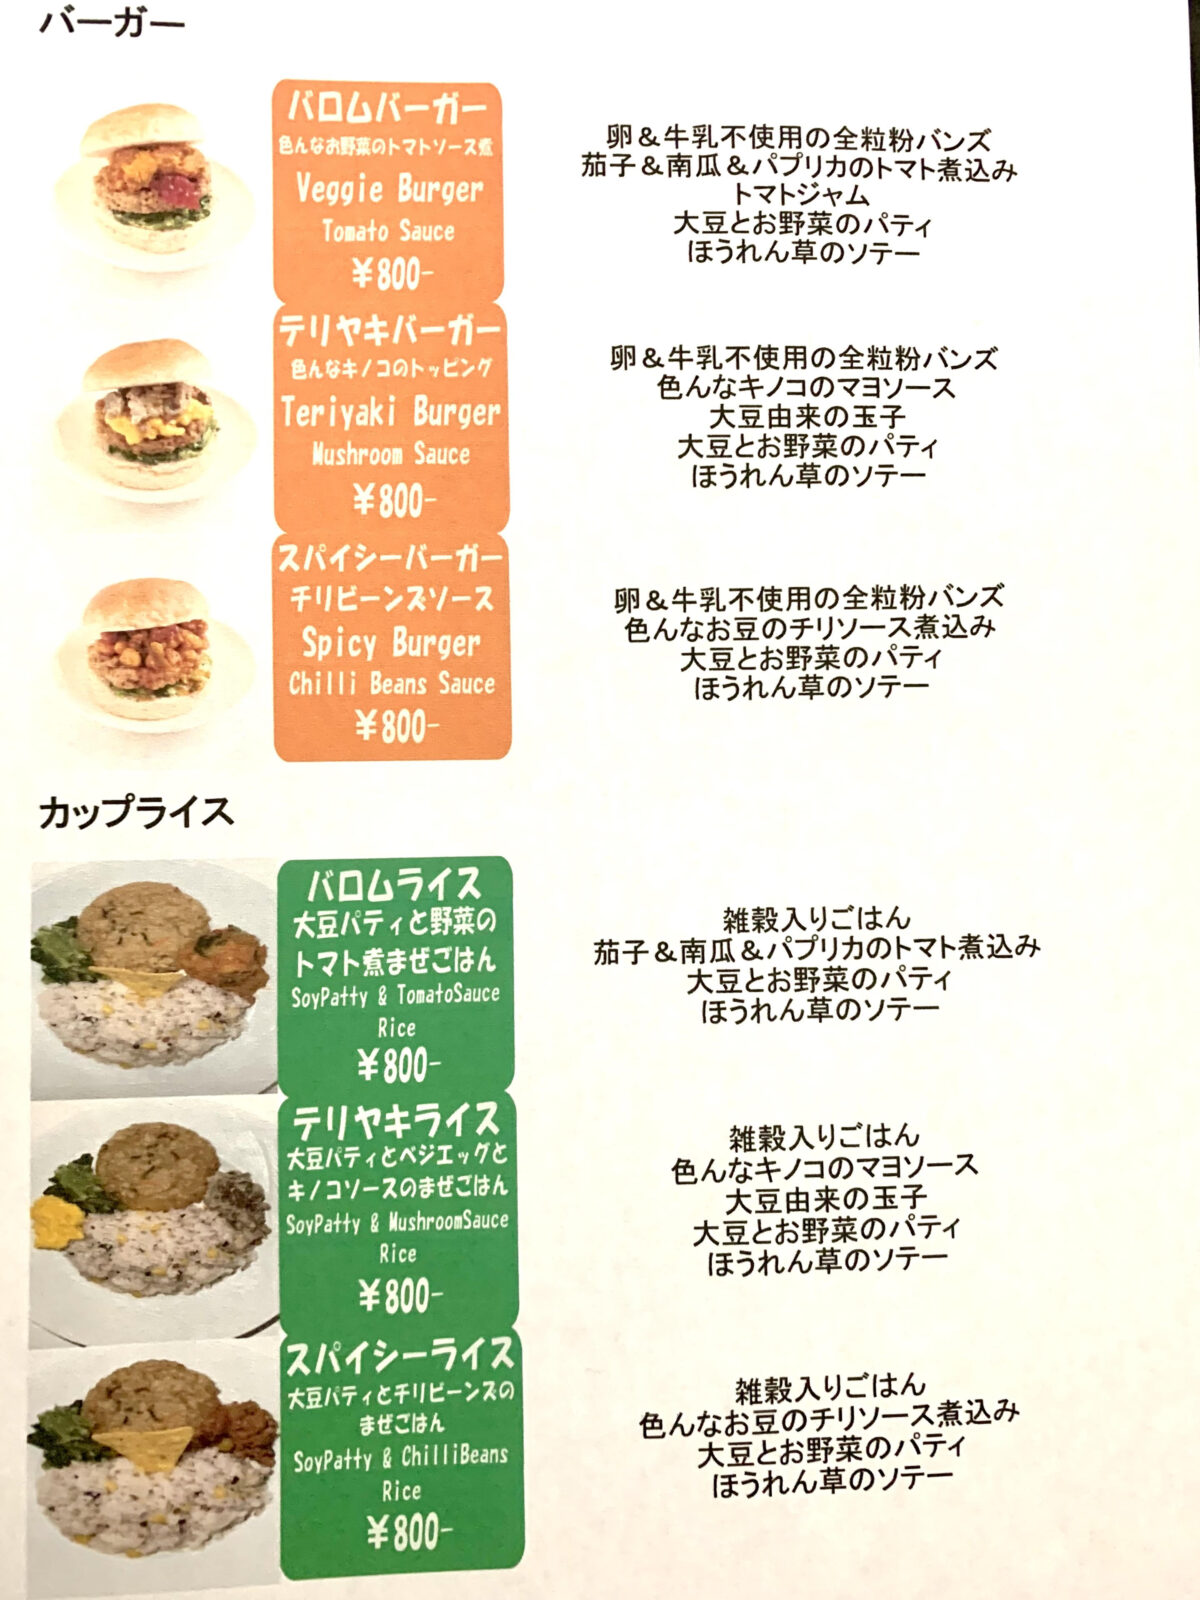 バーガー
バロムバーガー
色んなお野菜のトマトソース煮
Veggie Burger
Tomato Sauce
¥800-
卵&牛乳不使用の全粒粉バンズ
茄子&南瓜&パプリカのトマト煮込み
トマトジャム
大豆とお野菜のパティ
ほうれん草のソテー
テリヤキバーガー
色んなキノコのトッピング
Teriyaki Burger
Mushroom Sauce
¥800-
卵&牛乳不使用の全粒粉バンズ
色んなキノコのマヨソース
大豆由来の玉子
大豆とお野菜のパティ
ほうれん草のソテー
スパイシーバーガー
チリビーンズソース
Spicy Burger
Chilli Beans Sauce
¥800-
卵&牛乳不使用の全粒粉バンズ
色んなお豆のチリソース煮込み
大豆とお野菜のパティ
ほうれん草のソテー
カップライス
バロムライス
大豆パティと野菜の
トマト煮まぜごはん
SoyPatty & TomatoSauce
Rice
¥800-
雑穀入りごはん
茄子&南瓜&パプリカのトマト煮込み
大豆とお野菜のパティ
ほうれん草のソテー
テリヤキライス
大豆パティとベジエッグと
キノコソースのまぜごはん
SoyPatty & MushroomSauce
Rice
¥800-
雑穀入りごはん
色んなキノコのマヨソース
大豆由来の玉子
大豆とお野菜のパティ
ほうれん草のソテー
スパイシーライス
大豆パティとチリビーンズの
まぜごはん
SoyPatty & ChilliBeans
Rice
¥800-
雑穀入りごはん
色んなお豆のチリソース煮込み
大豆とお野菜のパティ
ほうれん草のソテー